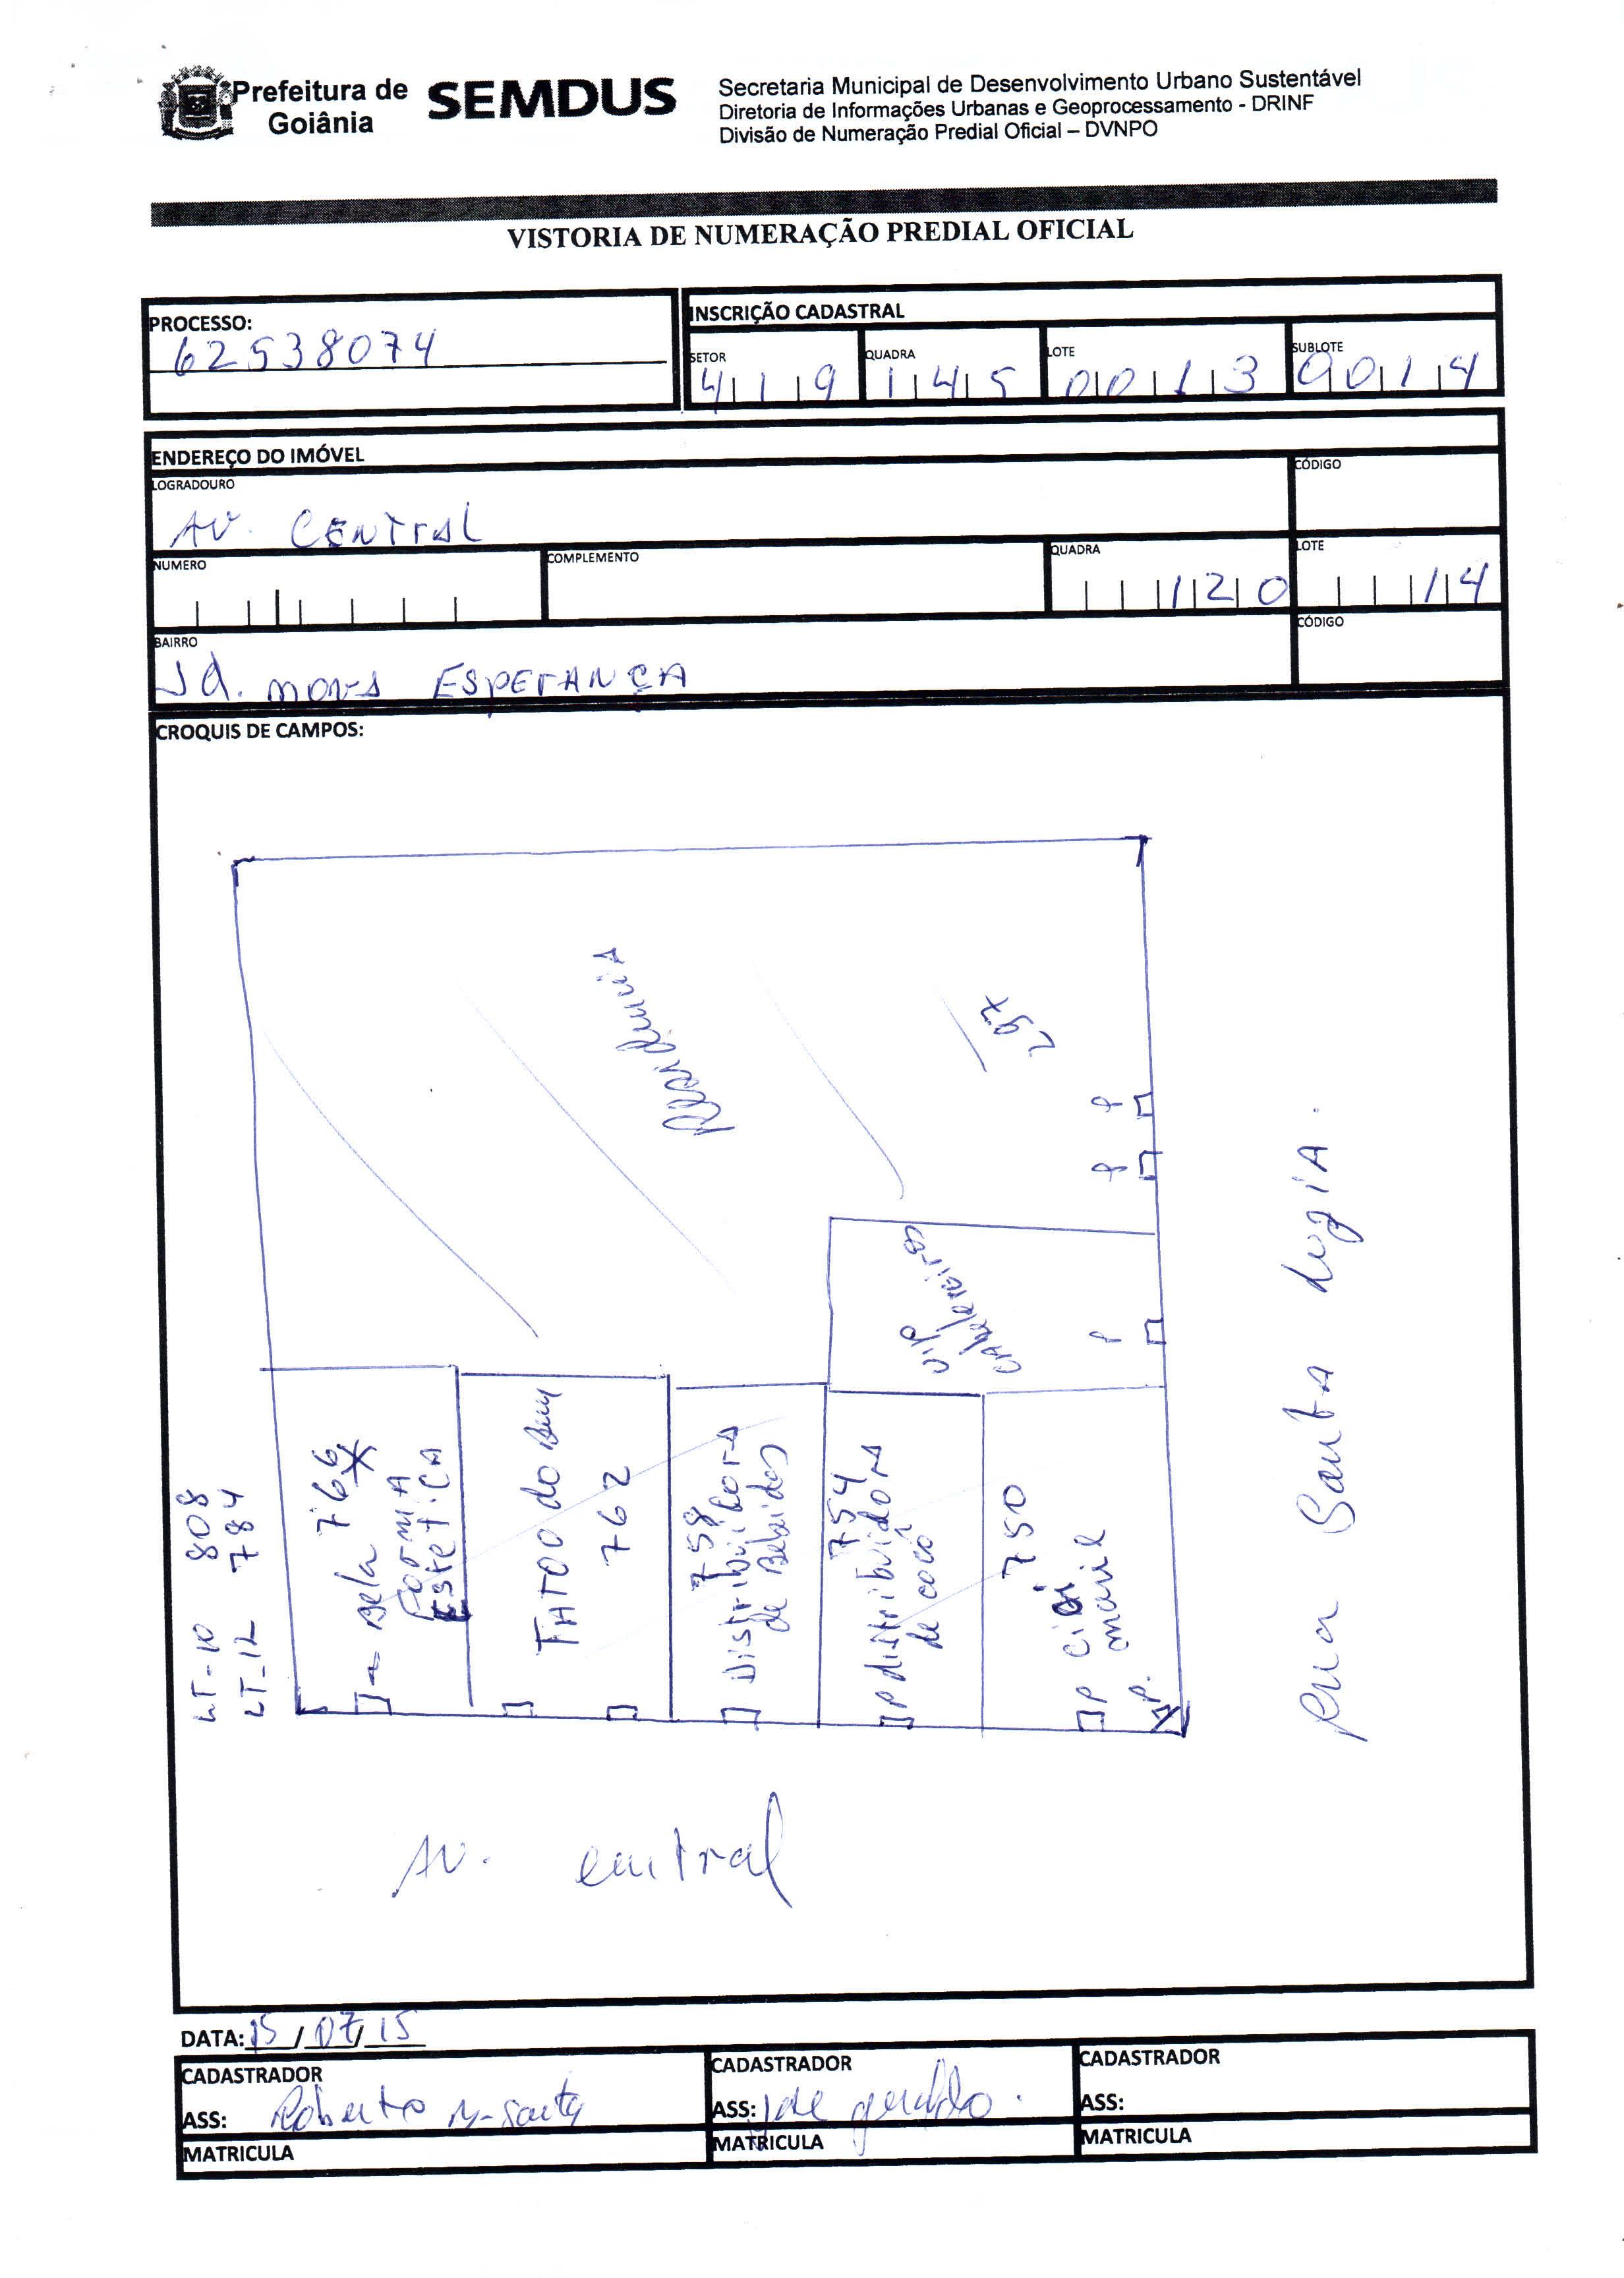 Prefeitura de Goiânia
SEMDUS
Secretaria Municipal de Desenvolvimento Urbano Sustentável
Diretoria de Informações Urbanas e Geoprocessamento - DRINF
Divisão de Numeração Predial Oficial – DVNPO
VISTORIA DE NUMERAÇÃO PREDIAL OFICIAL
PROCESSO:
62538074
INSCRIÇÃO CADASTRAL
SETOR QUADRA LOTE SUBLOTE
419 145 0013 0014
ENDEREÇO DO IMÓVEL
LOGRADOURO CÓDIGO
AV. CENTRAL
NUMERO COMPLEMENTO QUADRA LOTE
120 14
BAIRRO CÓDIGO
Jd. NOVA ESPERANÇA
CROQUIS DE CAMPOS:
Residencia
297
P
P
VIP
CABelereiros
P
LT-10 808
LT-12 784
Bela 766
Formia
EstetiCA
FATOO do Bem
762
758
Distribuidora
de Bebidas
754
P distribuidora
de coco
750
P
P.
Rua Santa Luzia.
AV. central
DATA: 15/07/15
CADASTRADOR CADASTRADOR CADASTRADOR
ASS: Roberto ASS: José geraldo. ASS:
MATRICULA MATRICULA MATRICULA